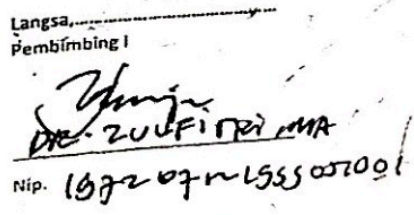 Langsa,
Pembimbing I
DR. ZULFITRI, MA
Nip. 19720712 199905 1001